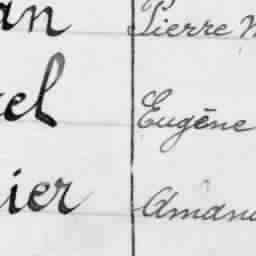 an Pierre
el Eugène
ier Amand